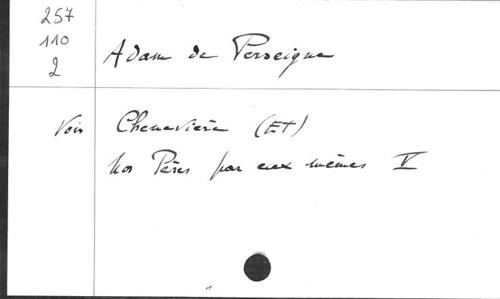 257
110
2
Adam de Perseigne
Voir Chenevière (Et)
Nos Pères par eux mêmes V